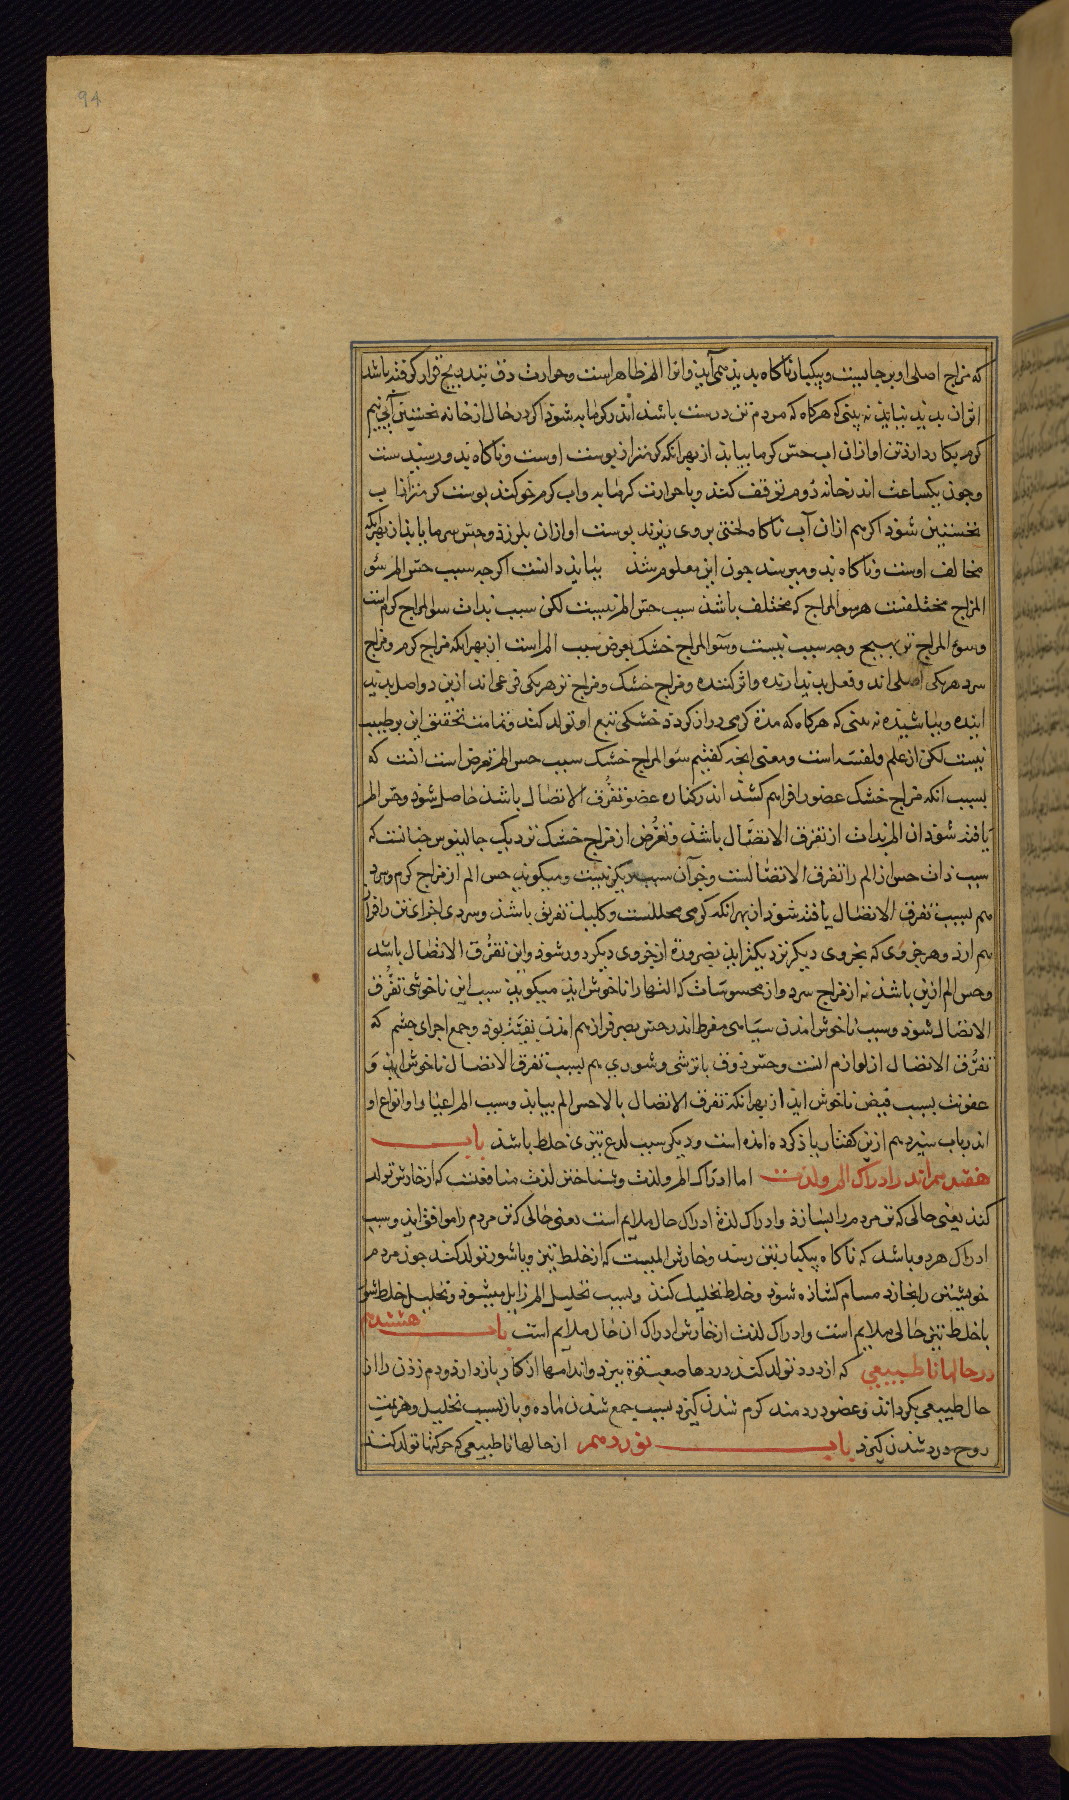 94
که مزاج اصلی او بر جا نیست و بیکبار ناکاه بدید همی آید و اثر الم ظاهر است و حرارت دق بتدریج قرار کرفته باشد
اثر ان بدید نیاید نه بینی که هرکاه که مردم تن درست باشد اندر کرمابه شود اکر در حال از خانه نخستین آبی نیم
کرم بکار دارد تن او ازان اب حس کرما بیابد از بهر انکه کرمتر از پوست اوست و ناکاه بدو رسید ست
و چون یکساعت اندر خانه دوم توقف کند و با حرارت کرمابه و اب کرم خو کند پوست کرمتر از اب
نخستین شود اکر هم ازان آب ناکاه لختی بر وی ریزند پوست او ازان بلرزد و حس سرما یابد از بهر انکه
مخالف اوست و ناکاه بدو میرسد چون این معلوم شد بباید دانست اکرچه سبب حس الم سو
المزاج مختلفست هر سوالمزاج که مختلف باشد سبب حس الم نیست لکن سبب بذات سوالمزاج کرم است
و سوالمزاج تر بهیچ وجه سبب نیست و سوالمزاج خشک بعرض سبب الم است از بهر انکه مزاج کرم و مزاج
سرد هر یکی اصلی اند و فعل بدید ارنده و اثر کننده و مزاج خشک و مزاج تر هر یکی فرعی اند ازین دو اصل بدید
اینده و بباشیده نه بینی که هرکاه که مدة کرمی دراز کردد خشکی تبع او تولد کند و تمامت تحقیق این بر طبیب
نیست لکن از علم فلسفه است و معنی انچه کفتیم سوالمزاج خشک سبب حس الم بعرض است انست که
بسبب انکه مزاج خشک عضو را فراهم کشد اندر کناره عضو تفرق الاتصال باشد حاصل شود و حس الم
یافته شود ان الم بذات از تفرق الاتصال باشد و بعرض از مزاج خشک نزدیک جالینوس چنانست که
سبب ذات حس از الم را تفرق الاتصالست و جز آن سبب دیکر نیست و میکوید حس الم از مزاج کرم و سرد
هم بسبب تفرق الاتصال یافته شود از بهر انکه کرمی محللست و تفریق باشد و سردی اجزای تن را فراز
هم ارد و هر جزوی که بجزوی دیکر نزدیکتر اید بضرورة از جزوی دیکر دور شود و این تفرق الاتصال باشد
و حس الم ازین باشد نه از مزاج سرد و از محسوسات که انها را ناخوش اید میکوید سبب این ناخوشی تفرق
الاتصال شود و سبب ناخوش امدن سیاهی مفرط اندر حس بصر فراز هم امدن بود و جمع اجزای چشم که
تفرق الاتصال از لوازم انست و حس ذوق با ترشی و شوری هم بسبب تفرق الاتصال ناخوش اید و
عفونت بسبب قبض ناخوش اید از بهر انکه تفرق الاتصال بالا حس الم بیابد و سبب الم اعیا و انواع او
اندر باب سیزدهم ازین کفتار یاد کرده امده است و دیکر سبب لدع تیزی خلط باشد باب
هفدهم اندر ادراک الم و لذت اما ادراک الم و لذت و شناختن لذت منافعست که از خارش تولد
کند یعنی حالی که تن مردم را بسازد و ادراک لذة ادراک حال ملایم است یعنی حالی که تن مردم را موافق اید و سبب
ادراک هر دو باشد که ناکاه بیکبار بتن رسد و خارش المیست که از خلط تیز و یا شور تولد کند چون مردم
خویشتن را بخارد مسام کشاده شود و خلط تحلیل کند و بسبب تحلیل الم زایل میشود و تحلیل خلط شور
یا خلط تیز حالی ملایم است و ادراک لذت از خارش ادراک ان حال ملایم است باب هشتدهم
در حالها ناطبیعی که از درد تولد کند دردها صعب قوة ببرد و اندامها از کار باز دارد و دم زدن را از
حال طبیعی بکرداند و عضو دردمند کرم شدن کیرد بسبب جمع شدن ماده و باز بسبب تحلیل و هزیمت
روح سرد شدن کیرد باب نوزدهم از حالها ناطبیعی که حرکتها تولد کند